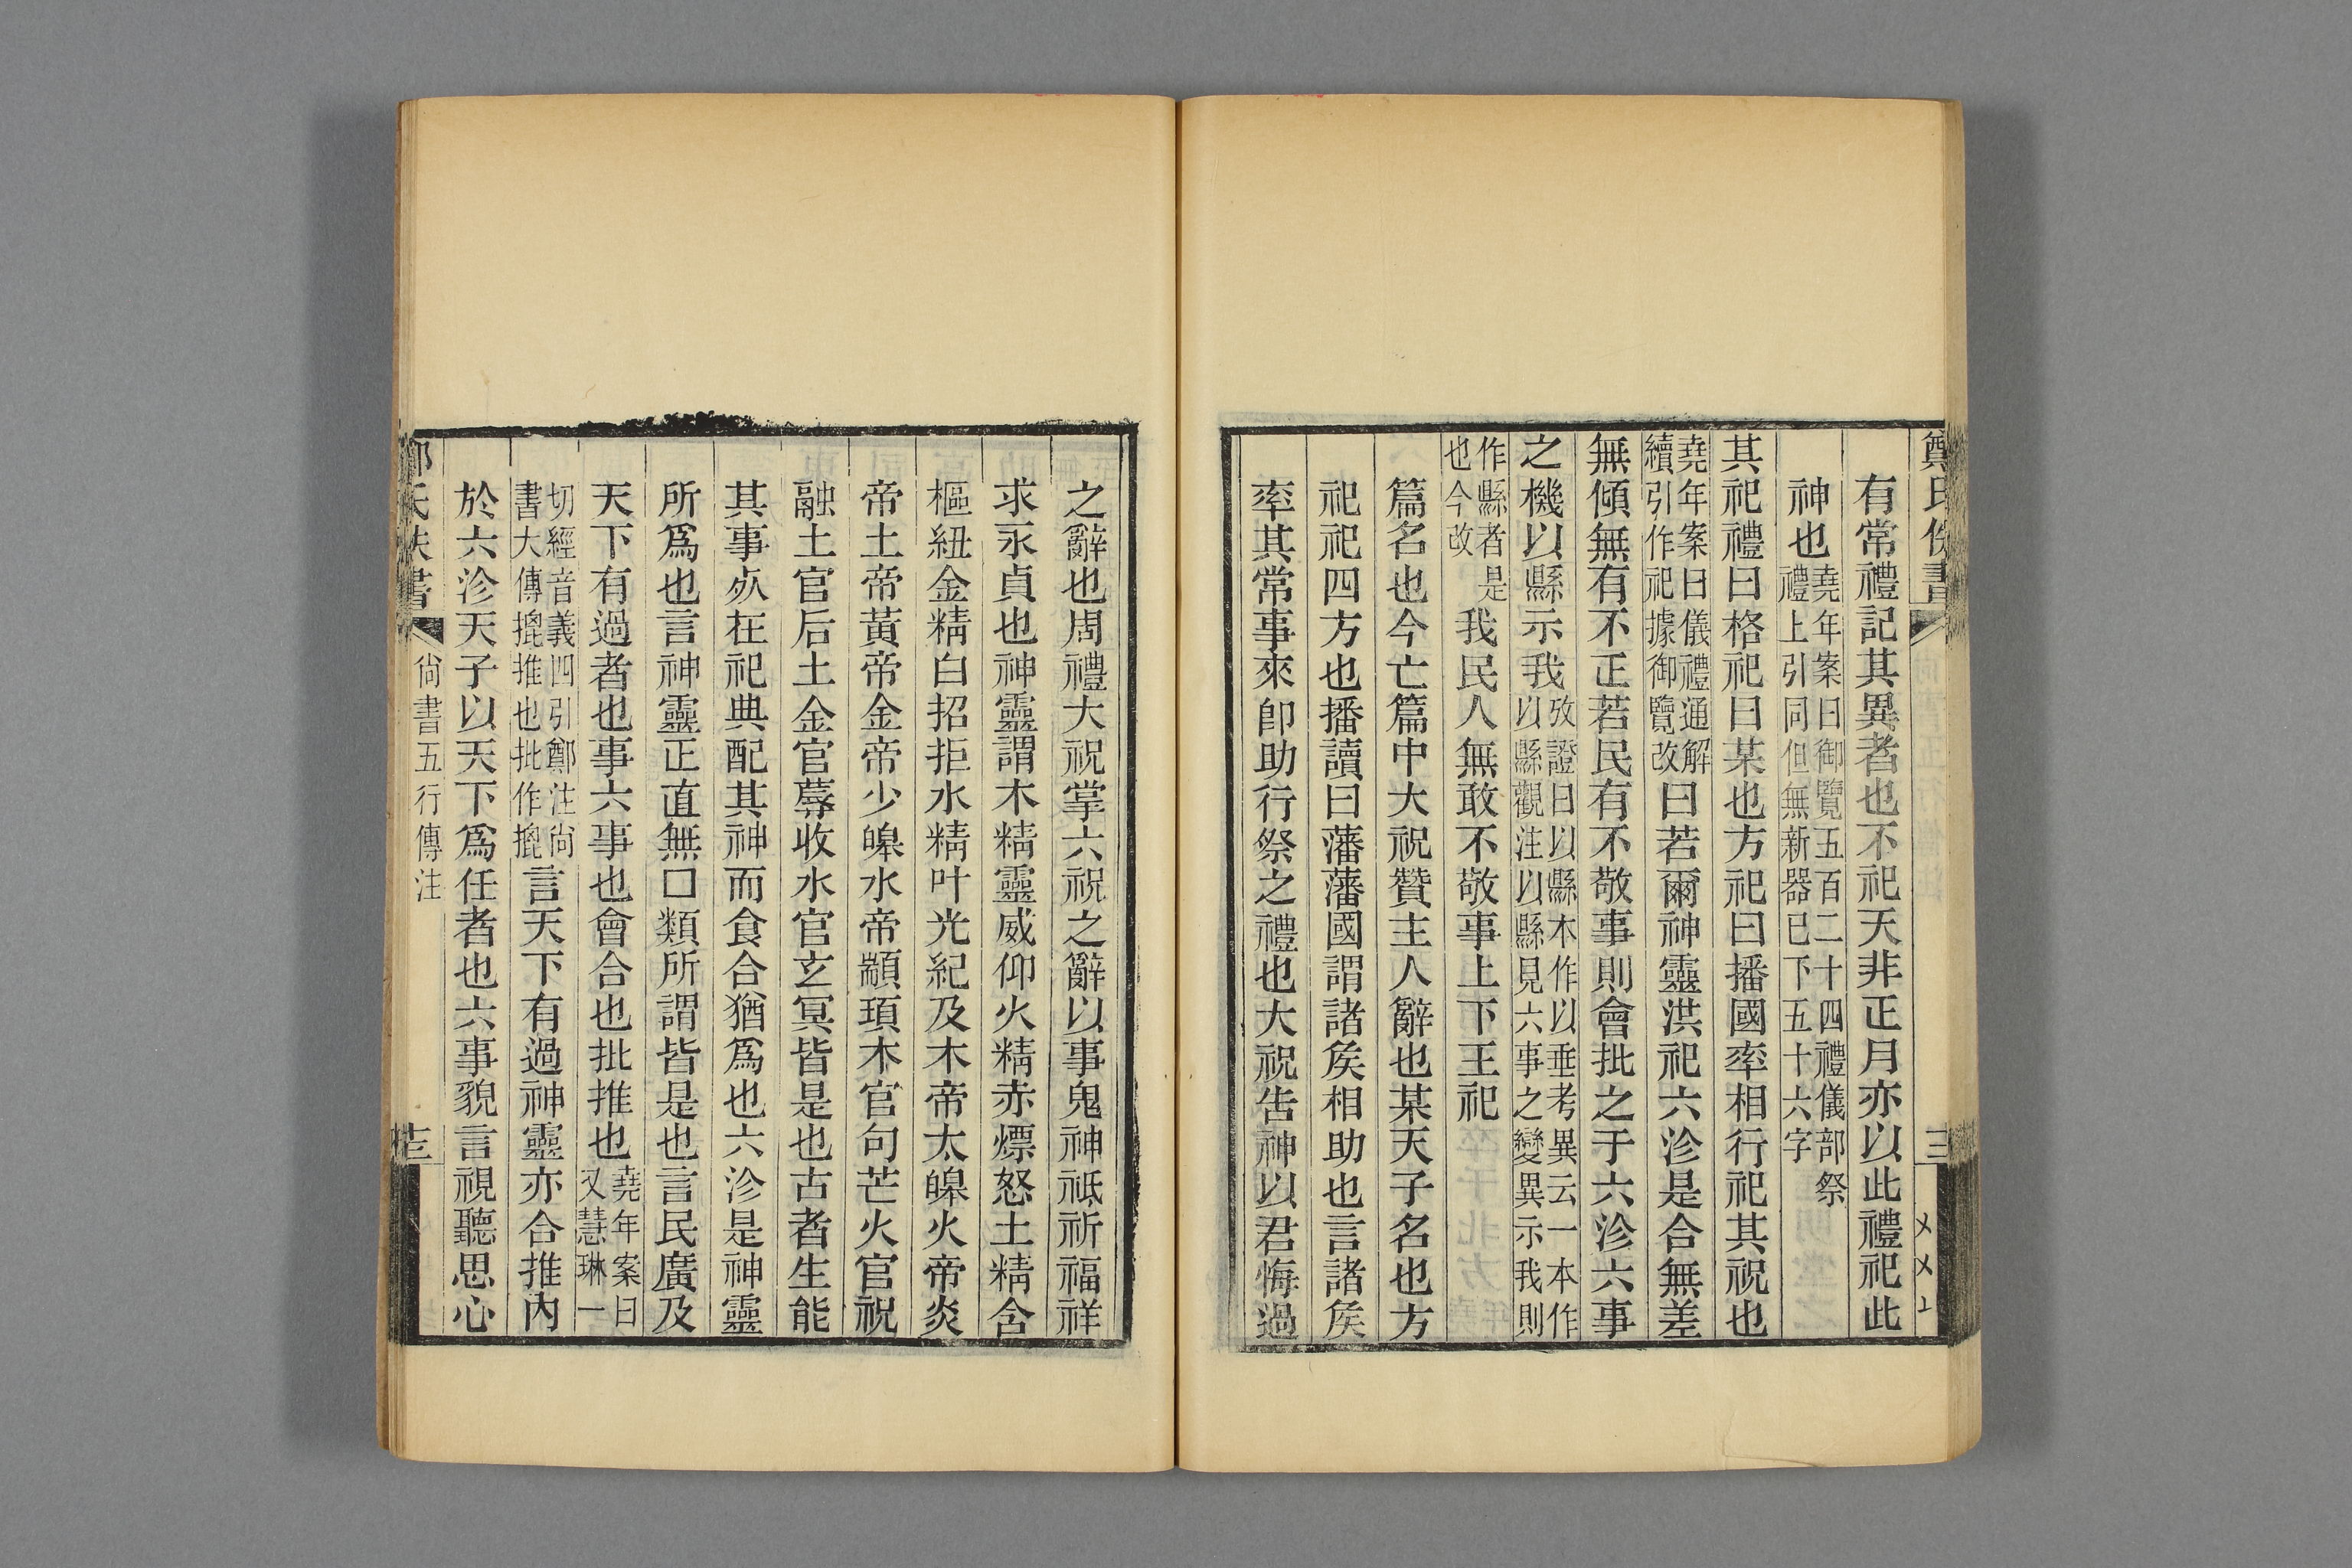 有常禮記其異者也不祀天非正月亦以此禮祀此
神也堯年案曰御覽五百二十四禮儀部祭禮上引同但無新器巳下五十六字
其祀禮曰格祀曰某也方祀曰播國率相行祀其祝也
堯年案曰儀禮通解續引作祀據御覽改曰若爾神靈洪祀六沴是合無差
無傾無有不正若民有不敬事則會批之于六沴六事
之機以縣示我攷證曰以縣本作以垂考異云一本作以縣觀注以縣見六事之變異示我則
作縣者是也今改我民人無敢不敬事上下王祀
篇名也今亡篇中大祝贊主人辭也某天子名也方
祀祀四方也播讀曰藩藩國謂諸矦相助也言諸矦
率其常事來卽助行祭之禮也大祝告神以君悔過
之辭也周禮大祝掌六祝之辭以事鬼神祗祈福祥
求永貞也神靈謂木精靈威仰火精赤熛怒土精含
樞紐金精白招拒水精叶光紀及木帝太皞火帝炎
帝土帝黃帝金帝少皞水帝顓頊木官句芒火官祝
融土官后土金官蓐收水官玄冥皆是也古者生能
其事死在祀典配其神而食合猶爲也六沴是神靈
所爲也言神靈正直無口類所謂皆是也言民廣及
天下有過者也事六事也會合也批推也堯年案曰又慧琳一
切經音義四引鄭注尙書大傳㨽推也批作㨽言天下有過神靈亦合推內
於六沴天子以天下爲任者也六事貌言視聽思心
尙書五行傳注